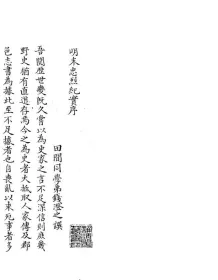 明末忠烈紀實序
田間同學弟錢澄之譔
吾閱歷世變既久嘗以為史家之言不足深信則庶幾
野史猶有直道存焉今之為史者大抵取人家傳及郡
邑志書為據此至不足據者也自喪亂以來死事者多